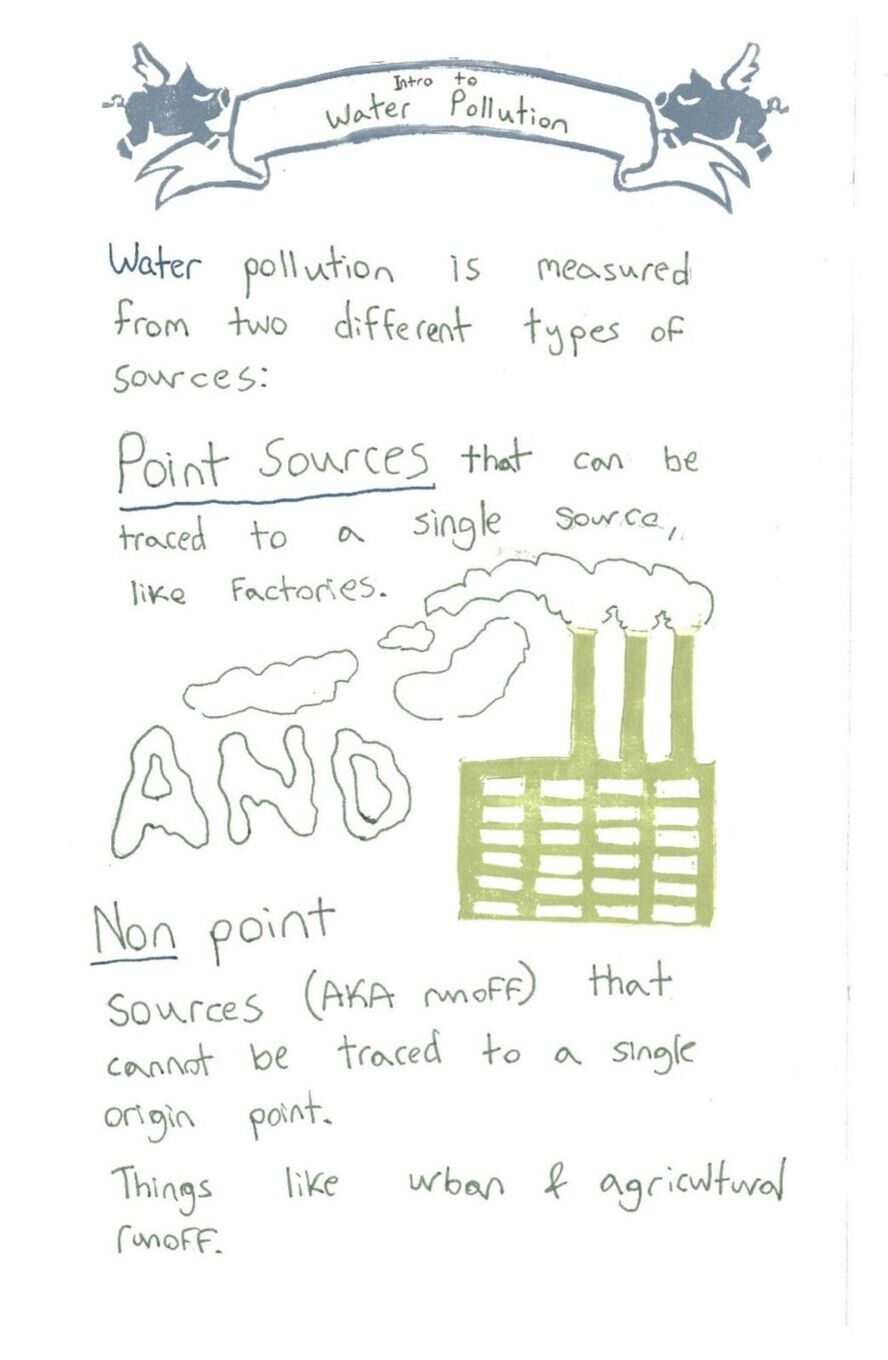 Intro to
Water Pollution
Water pollution is measured
from two different types of
sources:
Point Sources that can be
traced to a single source,
like Factories.
AND
Non point
Sources (AKA runoff) that
cannot be traced to a single
origin point.
Things like urban & agricultural
runoff.